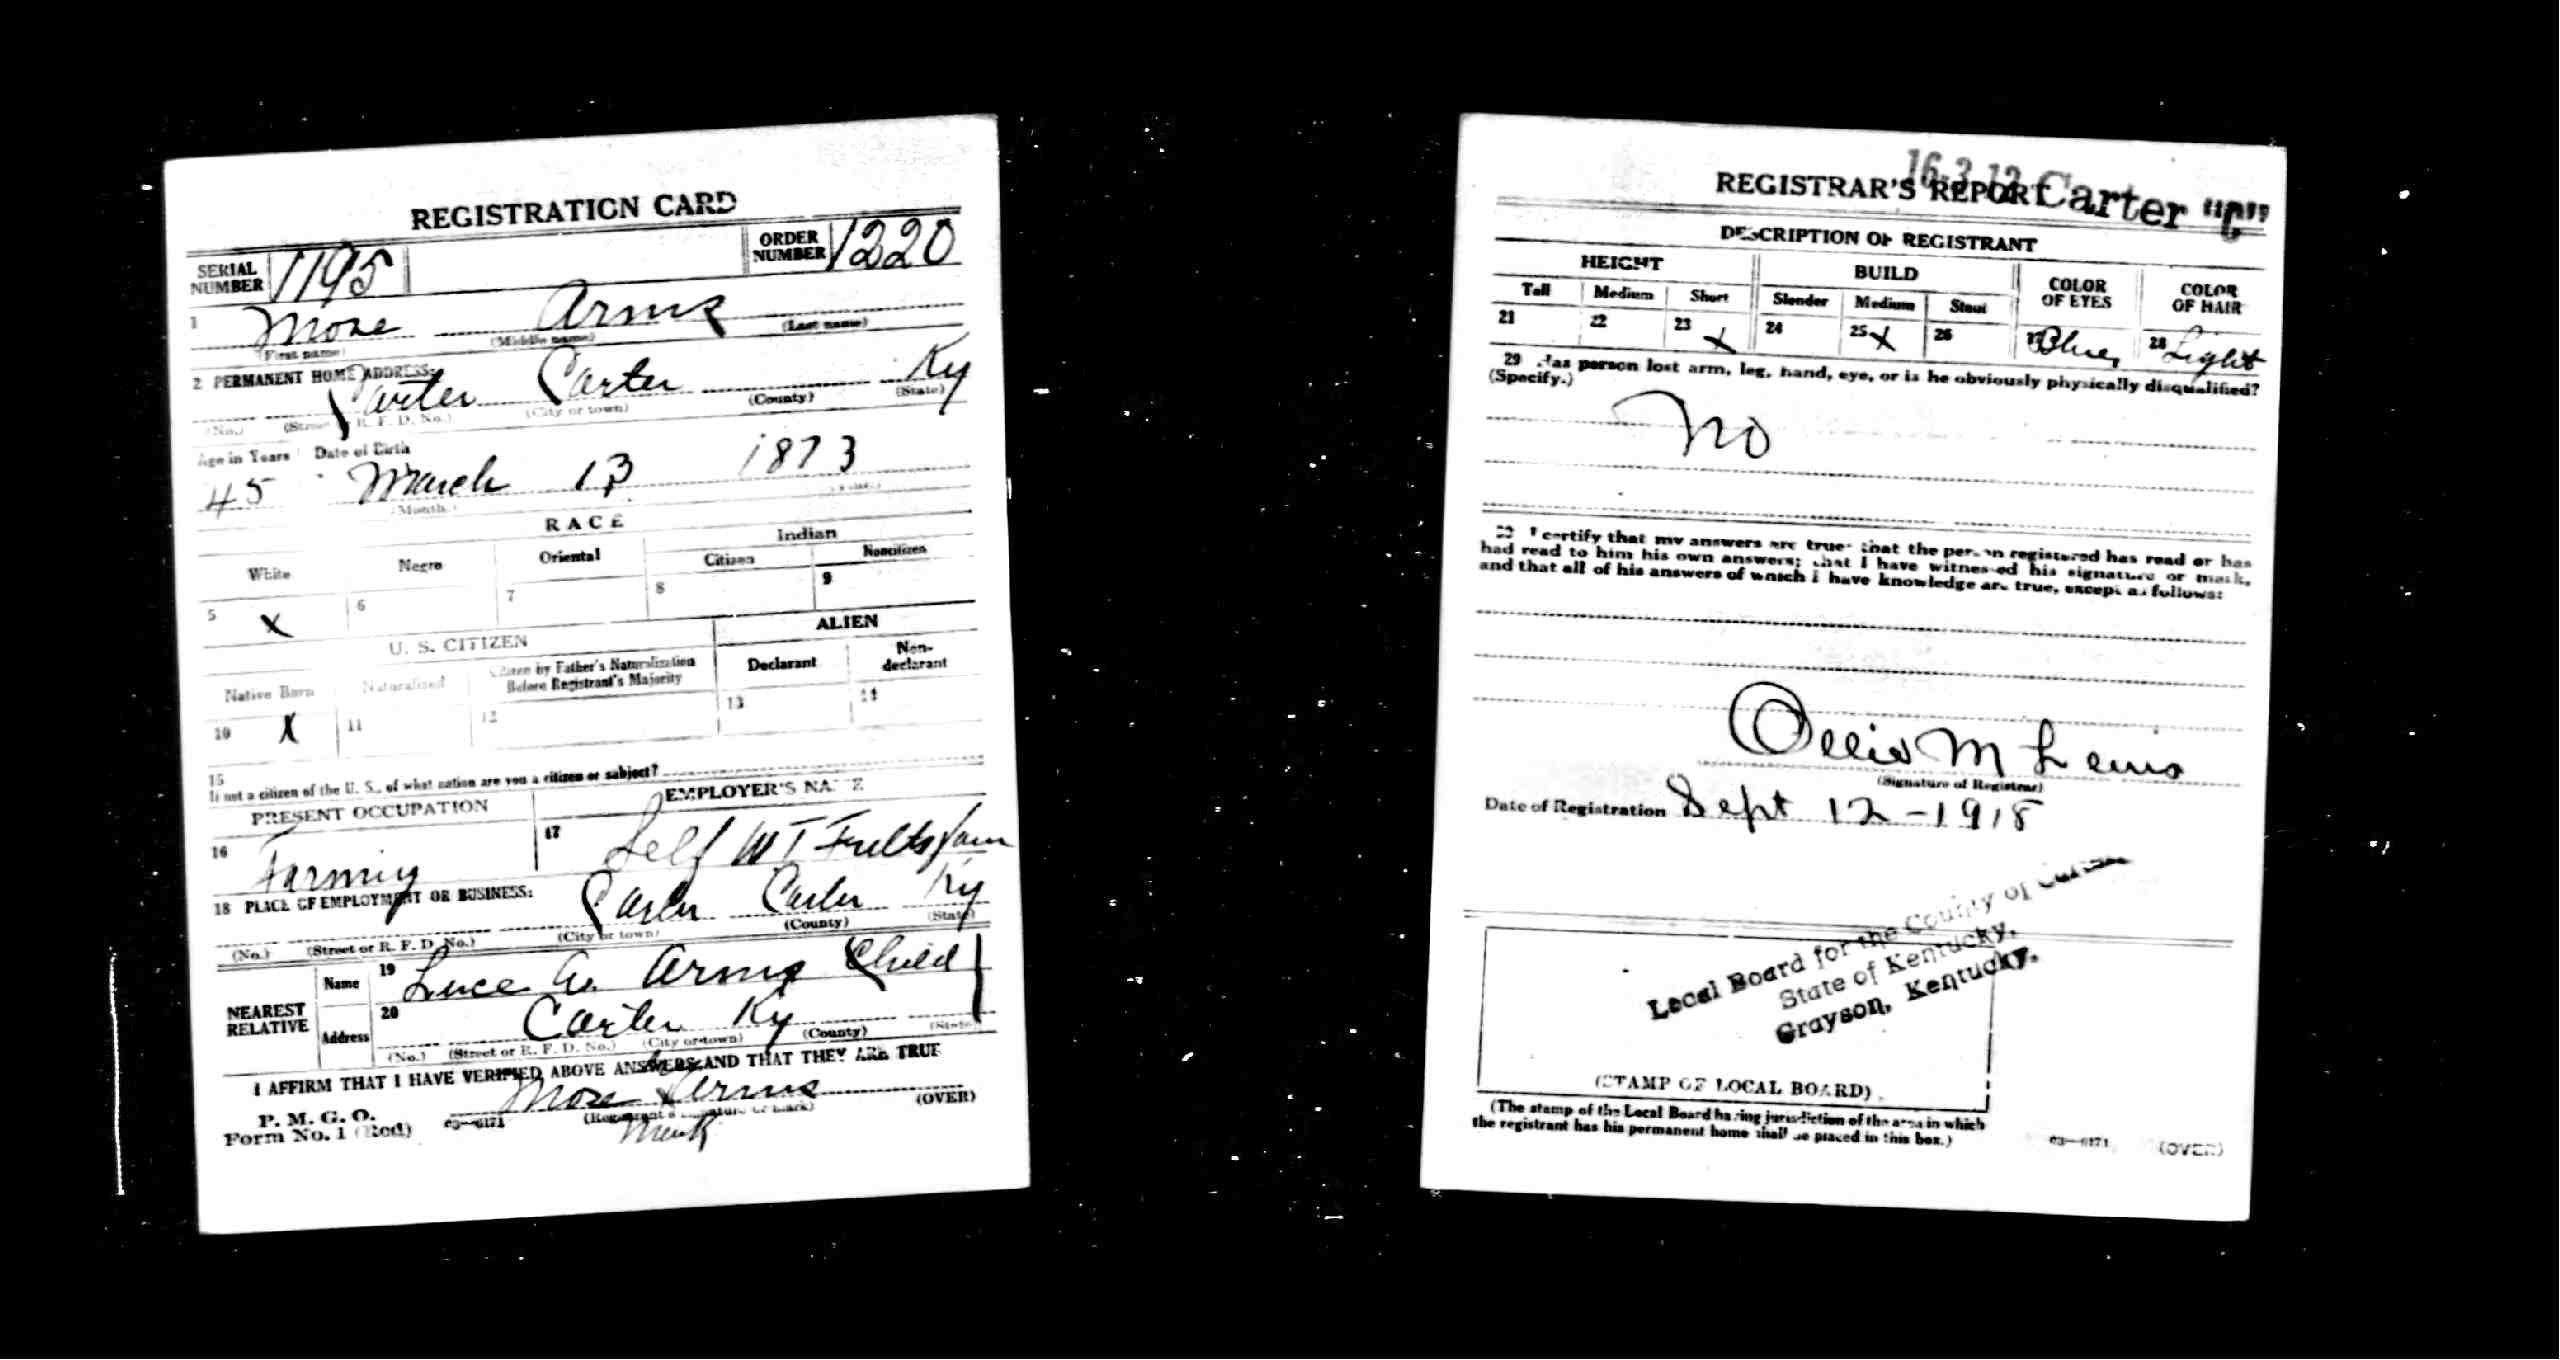 REGISTRATION CARD
SERIAL NUMBER 1195 ORDER NUMBER 1220
1 Mose Arms
(First name) (Middle name) (Last name)
2 PERMANENT HOME ADDRESS:
Carter Carter Ky
(No.) (Street R. F. D. No.) (City or town) (County) (State)
Age in Years Date of Birth
45 March 13 1873
(Month.)
RACE
White Negro Oriental Indian
Citizen Noncitizen
5 X 6 7 8 9
U. S. CITIZEN ALIEN
Native Born Naturalized Citizen by Father's Naturalization Before Registrant's Majority Declarant Non-declarant
10 X 11 12 13 14
15
If not a citizen of the U. S., of what nation are you a citizen or subject?
PRESENT OCCUPATION EMPLOYER'S NAME
16 Farming 17 Self W T Fults farm
18 PLACE OF EMPLOYMENT OR BUSINESS:
Carter Carter Ky
(No.) (Street or R. F. D. No.) (City or town) (County) (State)
NEAREST RELATIVE Name 19 Luce A. Arms Child
Address 20 Carter Ky
(No.) (Street or R. F. D. No.) (City or town) (County) (State)
I AFFIRM THAT I HAVE VERIFIED ABOVE ANSWERS AND THAT THEY ARE TRUE
Mose X Arms
P. M. G. O.
Form No. 1 (Red) 03—6171 (Registrant's signature or mark) (OVER)
Mark
16-3-12 Carter "C"
REGISTRAR'S REPORT
DESCRIPTION OF REGISTRANT
HEIGHT BUILD COLOR OF EYES COLOR OF HAIR
Tall Medium Short Slender Medium Stout
21 22 23 X 24 25 X 26 27 Blue 28 Light
29 Has person lost arm, leg, hand, eye, or is he obviously physically disqualified?
(Specify.)
No
30 I certify that my answers are true; that the person registered has read or has
had read to him his own answers; that I have witnessed his signature or mark,
and that all of his answers of which I have knowledge are true, except as follows:
Ollie M Lewis
(Signature of Registrar)
Date of Registration Sept 12-1918
Local Board for the County of Carter
State of Kentucky,
Grayson, Kentucky.
(STAMP OF LOCAL BOARD)
(The stamp of the Local Board having jurisdiction of the area in which
the registrant has his permanent home shall be placed in this box.)
03—6171 (OVER)